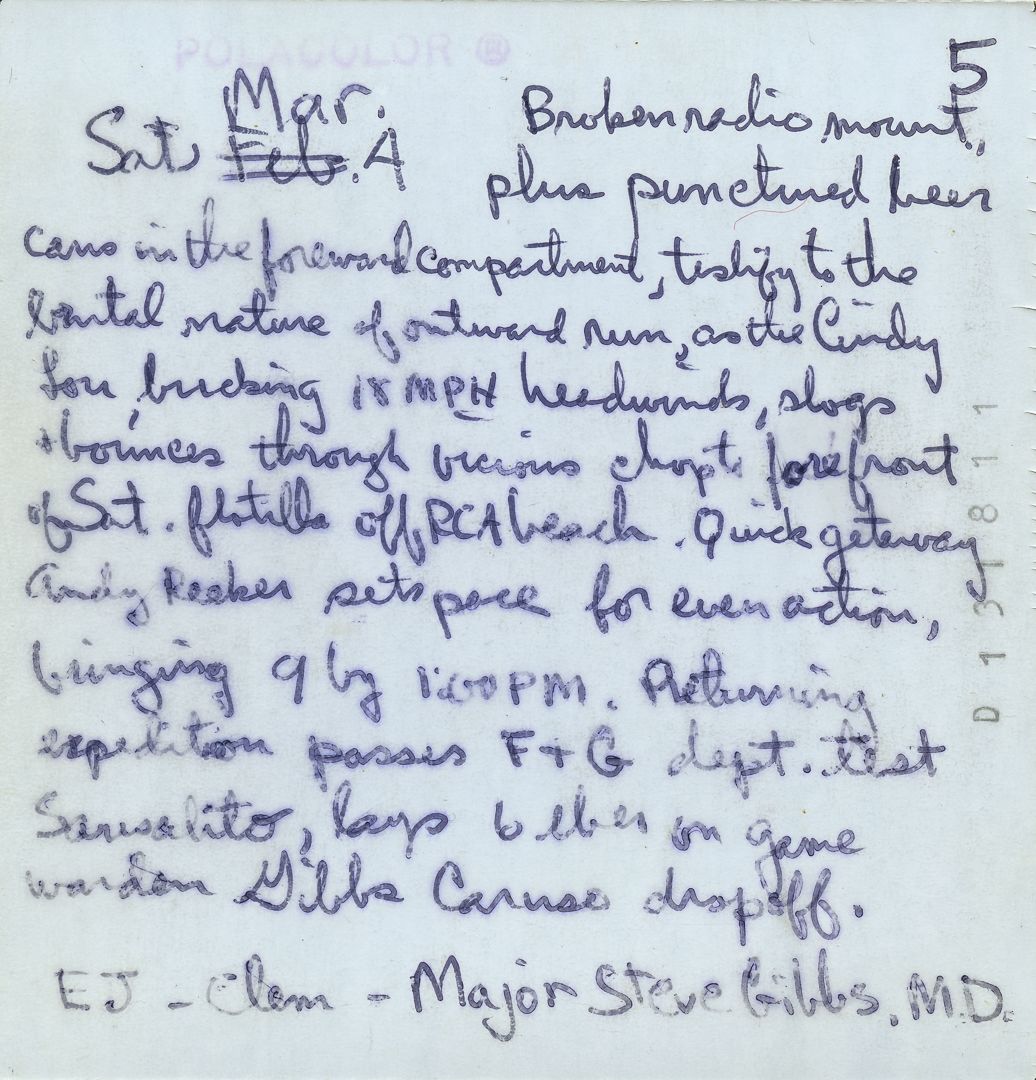 POLACOLOR ®
5
Mar.
Sat Feb. 4
Broken radio mount,
plus punctured beer
cans in the foreward compartment, testify to the
brutal nature of outward run, as the Cindy
Lou, bucking 18 MPH headwinds, slogs
+ bounces through vicious chop to forefront
of Sat. flotilla off RCA beach. Quick getaway
Andy Reeker sets pace for even action,
bringing 9 by 1:00 PM. Returning
expedition passes F + G dept. test
Sausalito, lays 6 lber on game
warden Gibbs Caruso dropoff.
EJ - Clem - Major Steve Gibbs, M.D.
D131811